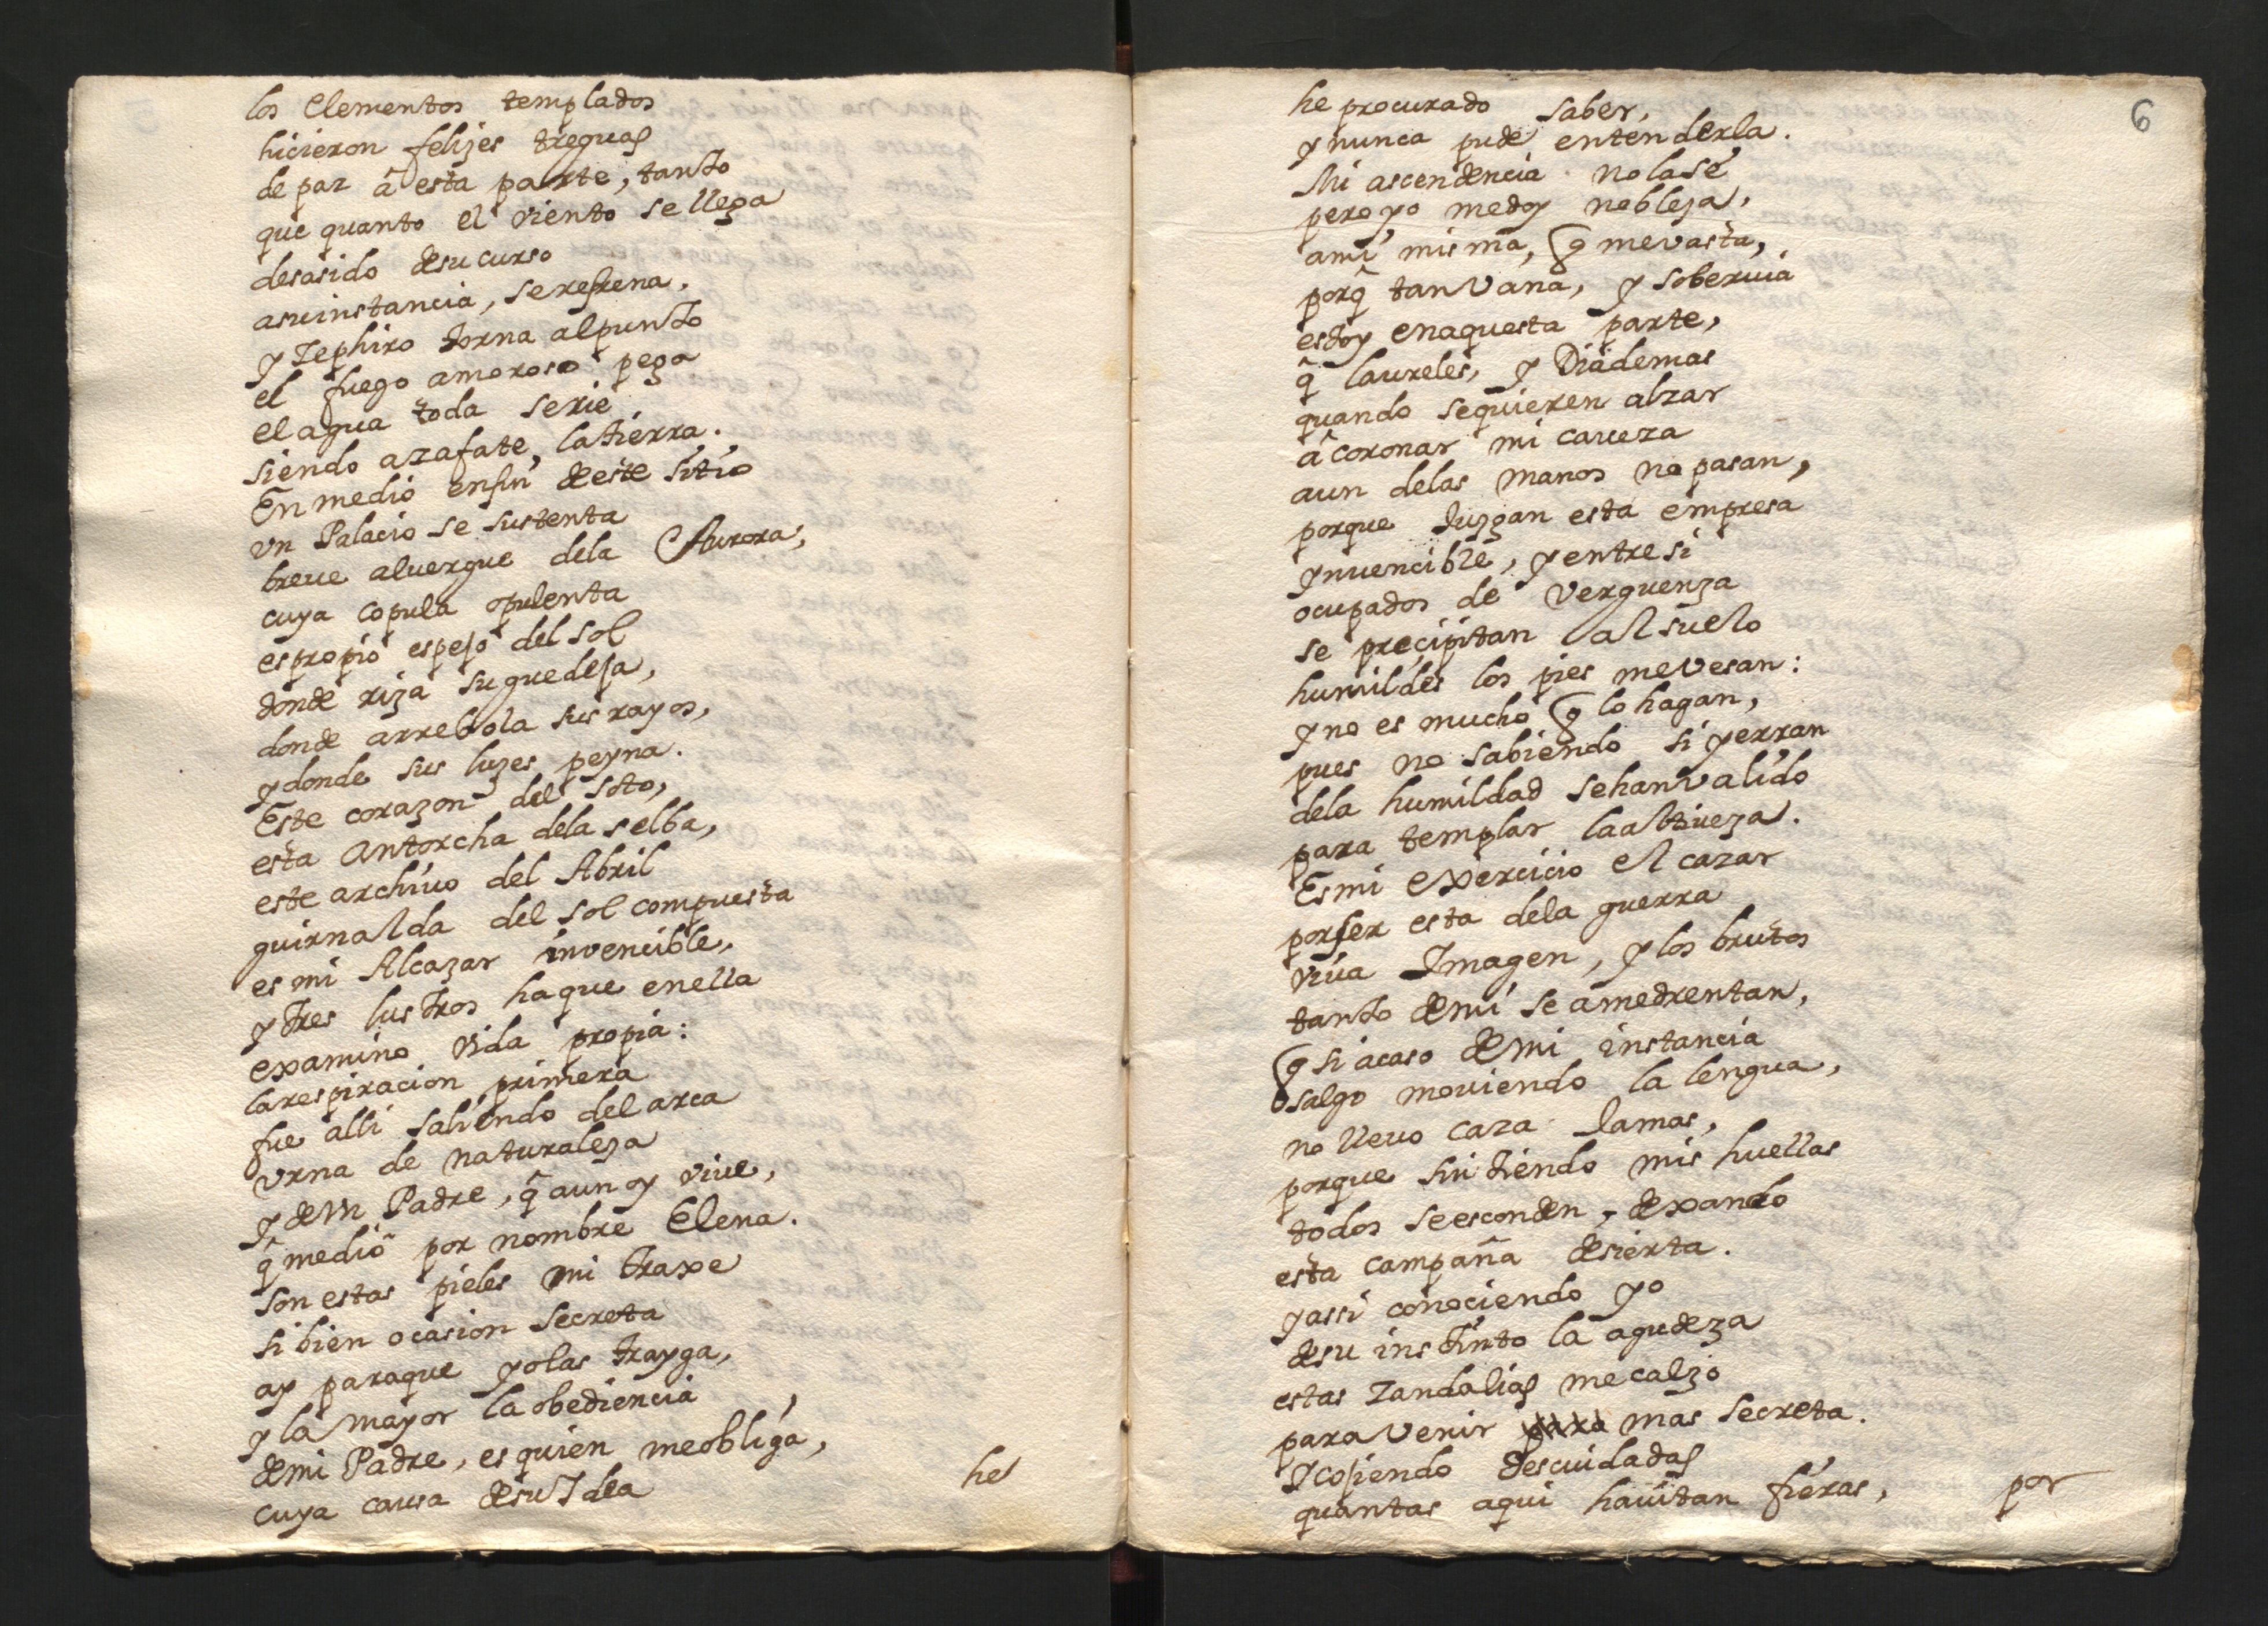 los Elementos templados
hicieron felizes treguas
de paz â esta parte, tanto
que quanto el viento se llega
desasido desu curso
asuinstancia, serefrena,
y Zephiro torna alpunto
el fuego amoroso pega
el agua toda serie
siendo azafate, latierra.
En medio enfin deeste sitio
vn Palacio se sustenta
breue aluergue dela Aurora,
cuya copula opulenta
espropio espejo del sol
donde riza suguedeja,
donde arrebola sus rayos,
ydonde sus luzes peyna.
Este corazon del soto,
esta antorcha dela selba,
este archiuo del Abril
guirnalda del sol compuesta
es mi Alcazar invencible,
y tres lustros haque enella
examino vida propia:
larespiracion primera
fue alli saliendo del arca
vrna de naturaleza
y de vn Padre, q̂ aun oy viue,
q̂ medio por nombre Elena.
son estas pieles mi traxe
si bien ocasion secreta
ay paraque yolas trayga,
y la mayor la obediencia,
demi Padre, es quien meobliga,
cuya causa desu Idea
he
6
he procurado saber,
y nunca pude entenderla.
Mi ascendencia nolasé
pero yo medoy nobleza,
ami misma, q mevasta,
porq̂ tan vana, y soberuia
estoy enaquesta parte,
q̂ laureles, y Diademas
quando sequieren alzar
â coronar mi caueza
aun delas manos no pasan,
porque Juzgan esta empresa
ynuencible, y entre si
ocupados de verguenza
se precipitan al suelo
humildes los pies mevesan:
y no es mucho q lo hagan,
pues no sabiendo si yerran
dela humildad sehanvalido
para templar laaltiueza.
Es mi exercicio el cazar
porser esta dela guerra
viua Imagen, y los brutos
tanto demi se amedrentan,
q si acaso demi instancia
salgo moviendo la lengua,
no lleuo caza Jamas,
porque sintiendo mis huellas
todos seesconden, dexando
esta campaña desierta.
yassi conociendo yo
desu instinto la agudeza
estas Zandalias me calzo
para venir para mas secreta.
Y cojiendo descuidadas
quantas aqui hauitan fieras,
por